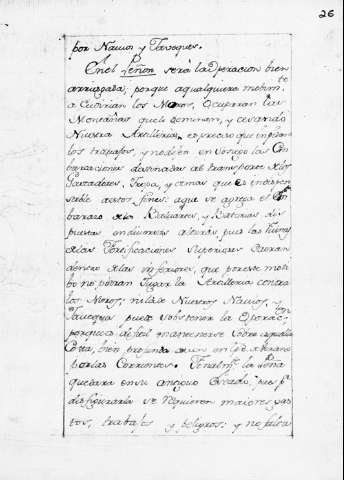 26
por Navios y Javeques.
En el Peñon será la operacion bien
arriesgada, porque a qualquiera
a Cudirian los Moros, Ocuparan las
Montañas que le dominen, y cesando
Nuestra Artilleria, es preciso que impidan
los trabajos, y no dejen en sosiego las Em
barcaciones destinadas al transporte de los
Gastadores, Tropa, y demas que es indispen
sable a estos fines: aque se agrega el Em
barazo de los Baluartes, y Baterias dis
puestas en diversas alturas, pues las
de las Fortificaciones Superiores Caeran
dentro de las inferiores, que por este moti
bo no podran Jugar la Artilleria contra
los Moros; ni la de Nuestros Navios, y
Javeques puede Substener la Operac.on
porque es dificil mantenerse Sobre aquella
Costa, bien
por las Corrientes. Finalm.te la
quedara en su antiguo Estado, pues p.a
desfigurarla se requieren maiores gas
tos, trabajos y peligros; y no